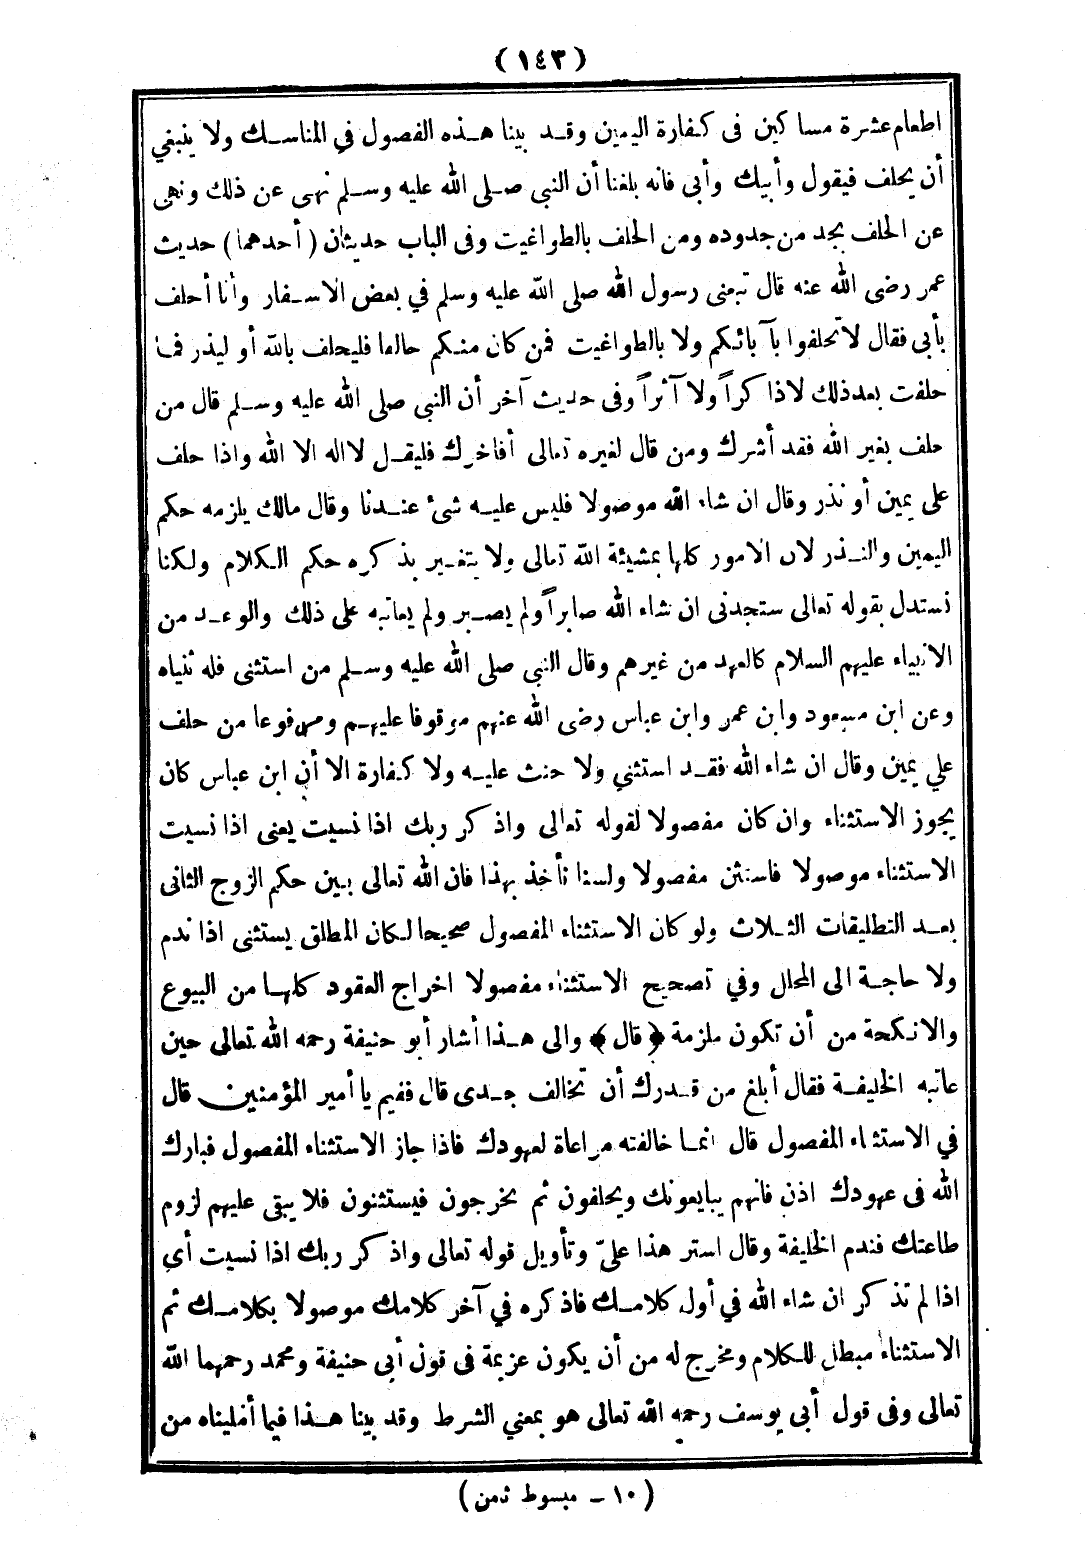 (١٤٣)
اطعام عشرة مساكين فى كفارة اليمين وقد بينا هذه الفصول في المناسك ولا ينبغي
أن يحلف فيقول وأبيك وأبى فانه بلغنا أن النبي صلى الله عليه وسلم نهى عن ذلك ونهى
عن الحلف بجد من جدوده ومن الحلف بالطواغيت وفى الباب حديثان (أحدهما) حديث
عمر رضى الله عنه قال تبعنى رسول الله صلى الله عليه وسلم في بعض الاسفار وأنا أحلف
بأبى فقال لا تحلفوا بآبائكم ولا بالطواغيت فمن كان منكم حالفا فليحلف بالله أو ليذر فما
حلفت بعد ذلك لا ذاكراً ولا آثراً وفى حديث آخر أن النبي صلى الله عليه وسلم قال من
حلف بغير الله فقد أشرك ومن قال لغيره تعالى أفاخرك فليقل لا اله الا الله واذا حلف
على يمين أو نذر وقال ان شاء الله موصولا فليس عليه شئ عندنا وقال مالك يلزمه حكم
اليمين والنذر لان الامور كلها بمشيئة الله تعالى ولا يتغير بذكره حكم الكلام ولكنا
نستدل بقوله تعالى ستجدنى ان شاء الله صابراً ولم يصبر ولم يعاتبه على ذلك والوعد من
الانبياء عليهم السلام كالعهد من غيرهم وقال النبي صلى الله عليه وسلم من استثنى فله ثنياه
وعن ابن مسعود وابن عمر وابن عباس رضى الله عنهم موقوفا عليهم ومرفوعا من حلف
علي يمين وقال ان شاء الله فقد استثني ولا حنث عليه ولا كفارة الا أن ابن عباس كان
يجوز الاستثناء وان كان مفصولا لقوله تعالى واذكر ربك اذا نسيت يعنى اذا نسيت
الاستثناء موصولا فاستثن مفصولا ولسنا نأخذ بهذا فان الله تعالى بين حكم الزوج الثانى
بعد التطليقات الثلاث ولو كان الاستثناء المفصول صحيحا لكان المطلق يستثنى اذا ندم
ولا حاجة الى المحلل وفي تصحيح الاستثناء مفصولا اخراج العقود كلها من البيوع
والانكحة من أن تكون ملزمة ﴿قال﴾ والى هذا أشار أبو حنيفة رحمه الله تعالى حين
عاتبه الخليفة فقال أبلغ من قدرك أن تخالف جدى قال ففيم يا أمير المؤمنين قال
في الاستثناء المفصول قال انما خالفته مراعاة لعهودك فاذا جاز الاستثناء المفصول فبارك
الله فى عهودك اذن فانهم يبايعونك ويحلفون ثم يخرجون فيستثنون فلا يبقى عليهم لزوم
طاعتك فندم الخليفة وقال استر هذا علىّ وتأويل قوله تعالى واذكر ربك اذا نسيت أي
اذا لم تذكر ان شاء الله في أول كلامك فاذكره في آخر كلامك موصولا بكلامك ثم
الاستثناء مبطل للكلام ومخرج له من أن يكون عزيمة فى قول أبى حنيفة ومحمد رحمهما الله
تعالى وفى قول أبى يوسف رحمه الله تعالى هو بمعني الشرط وقد بينا هذا فيما أمليناه من
(١٠ – مبسوط ثمن)